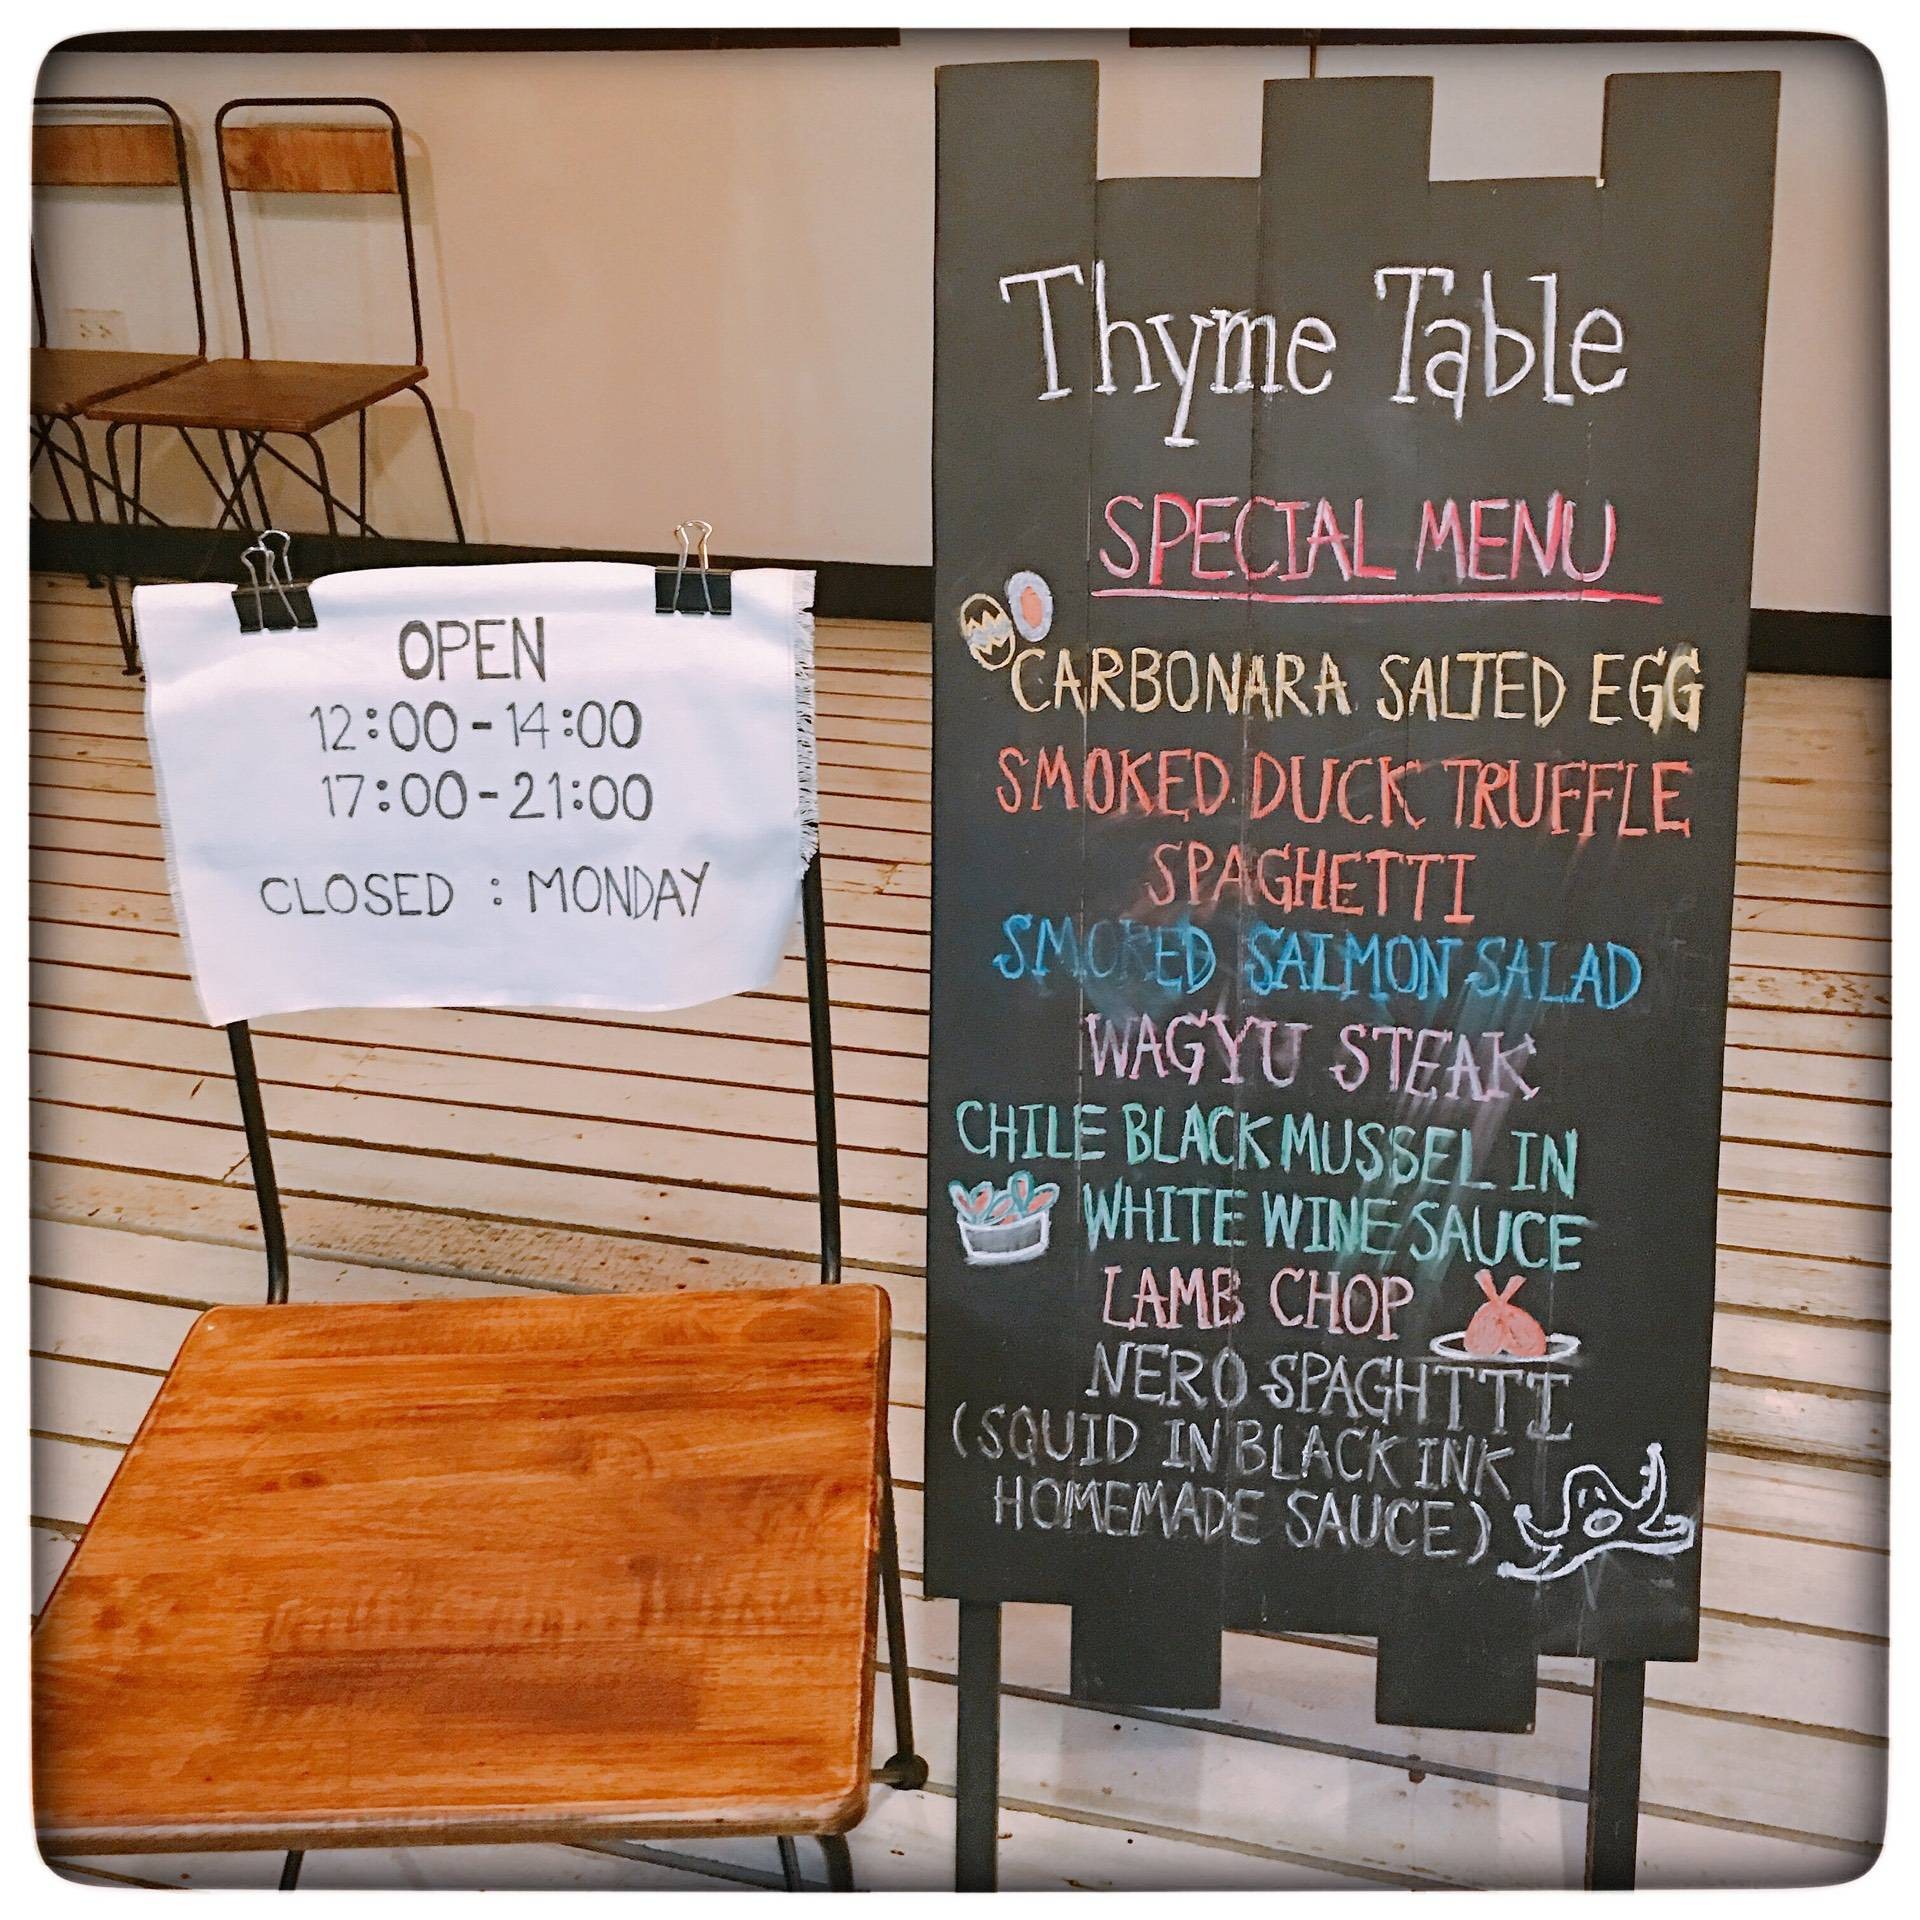 OPEN
12:00-14:00
17:00-21:00
CLOSED : MONDAY
Thyme Table
SPECIAL MENU
CARBONARA SALTED EGG
SMOKED DUCK TRUFFLE
SPAGHETTI
SMOKED SALMON SALAD
WAGYU STEAK
CHILE BLACK MUSSEL IN
WHITE WINE SAUCE
LAMB CHOP
NERO SPAGHTTI
(SQUID IN BLACK INK
HOMEMADE SAUCE)